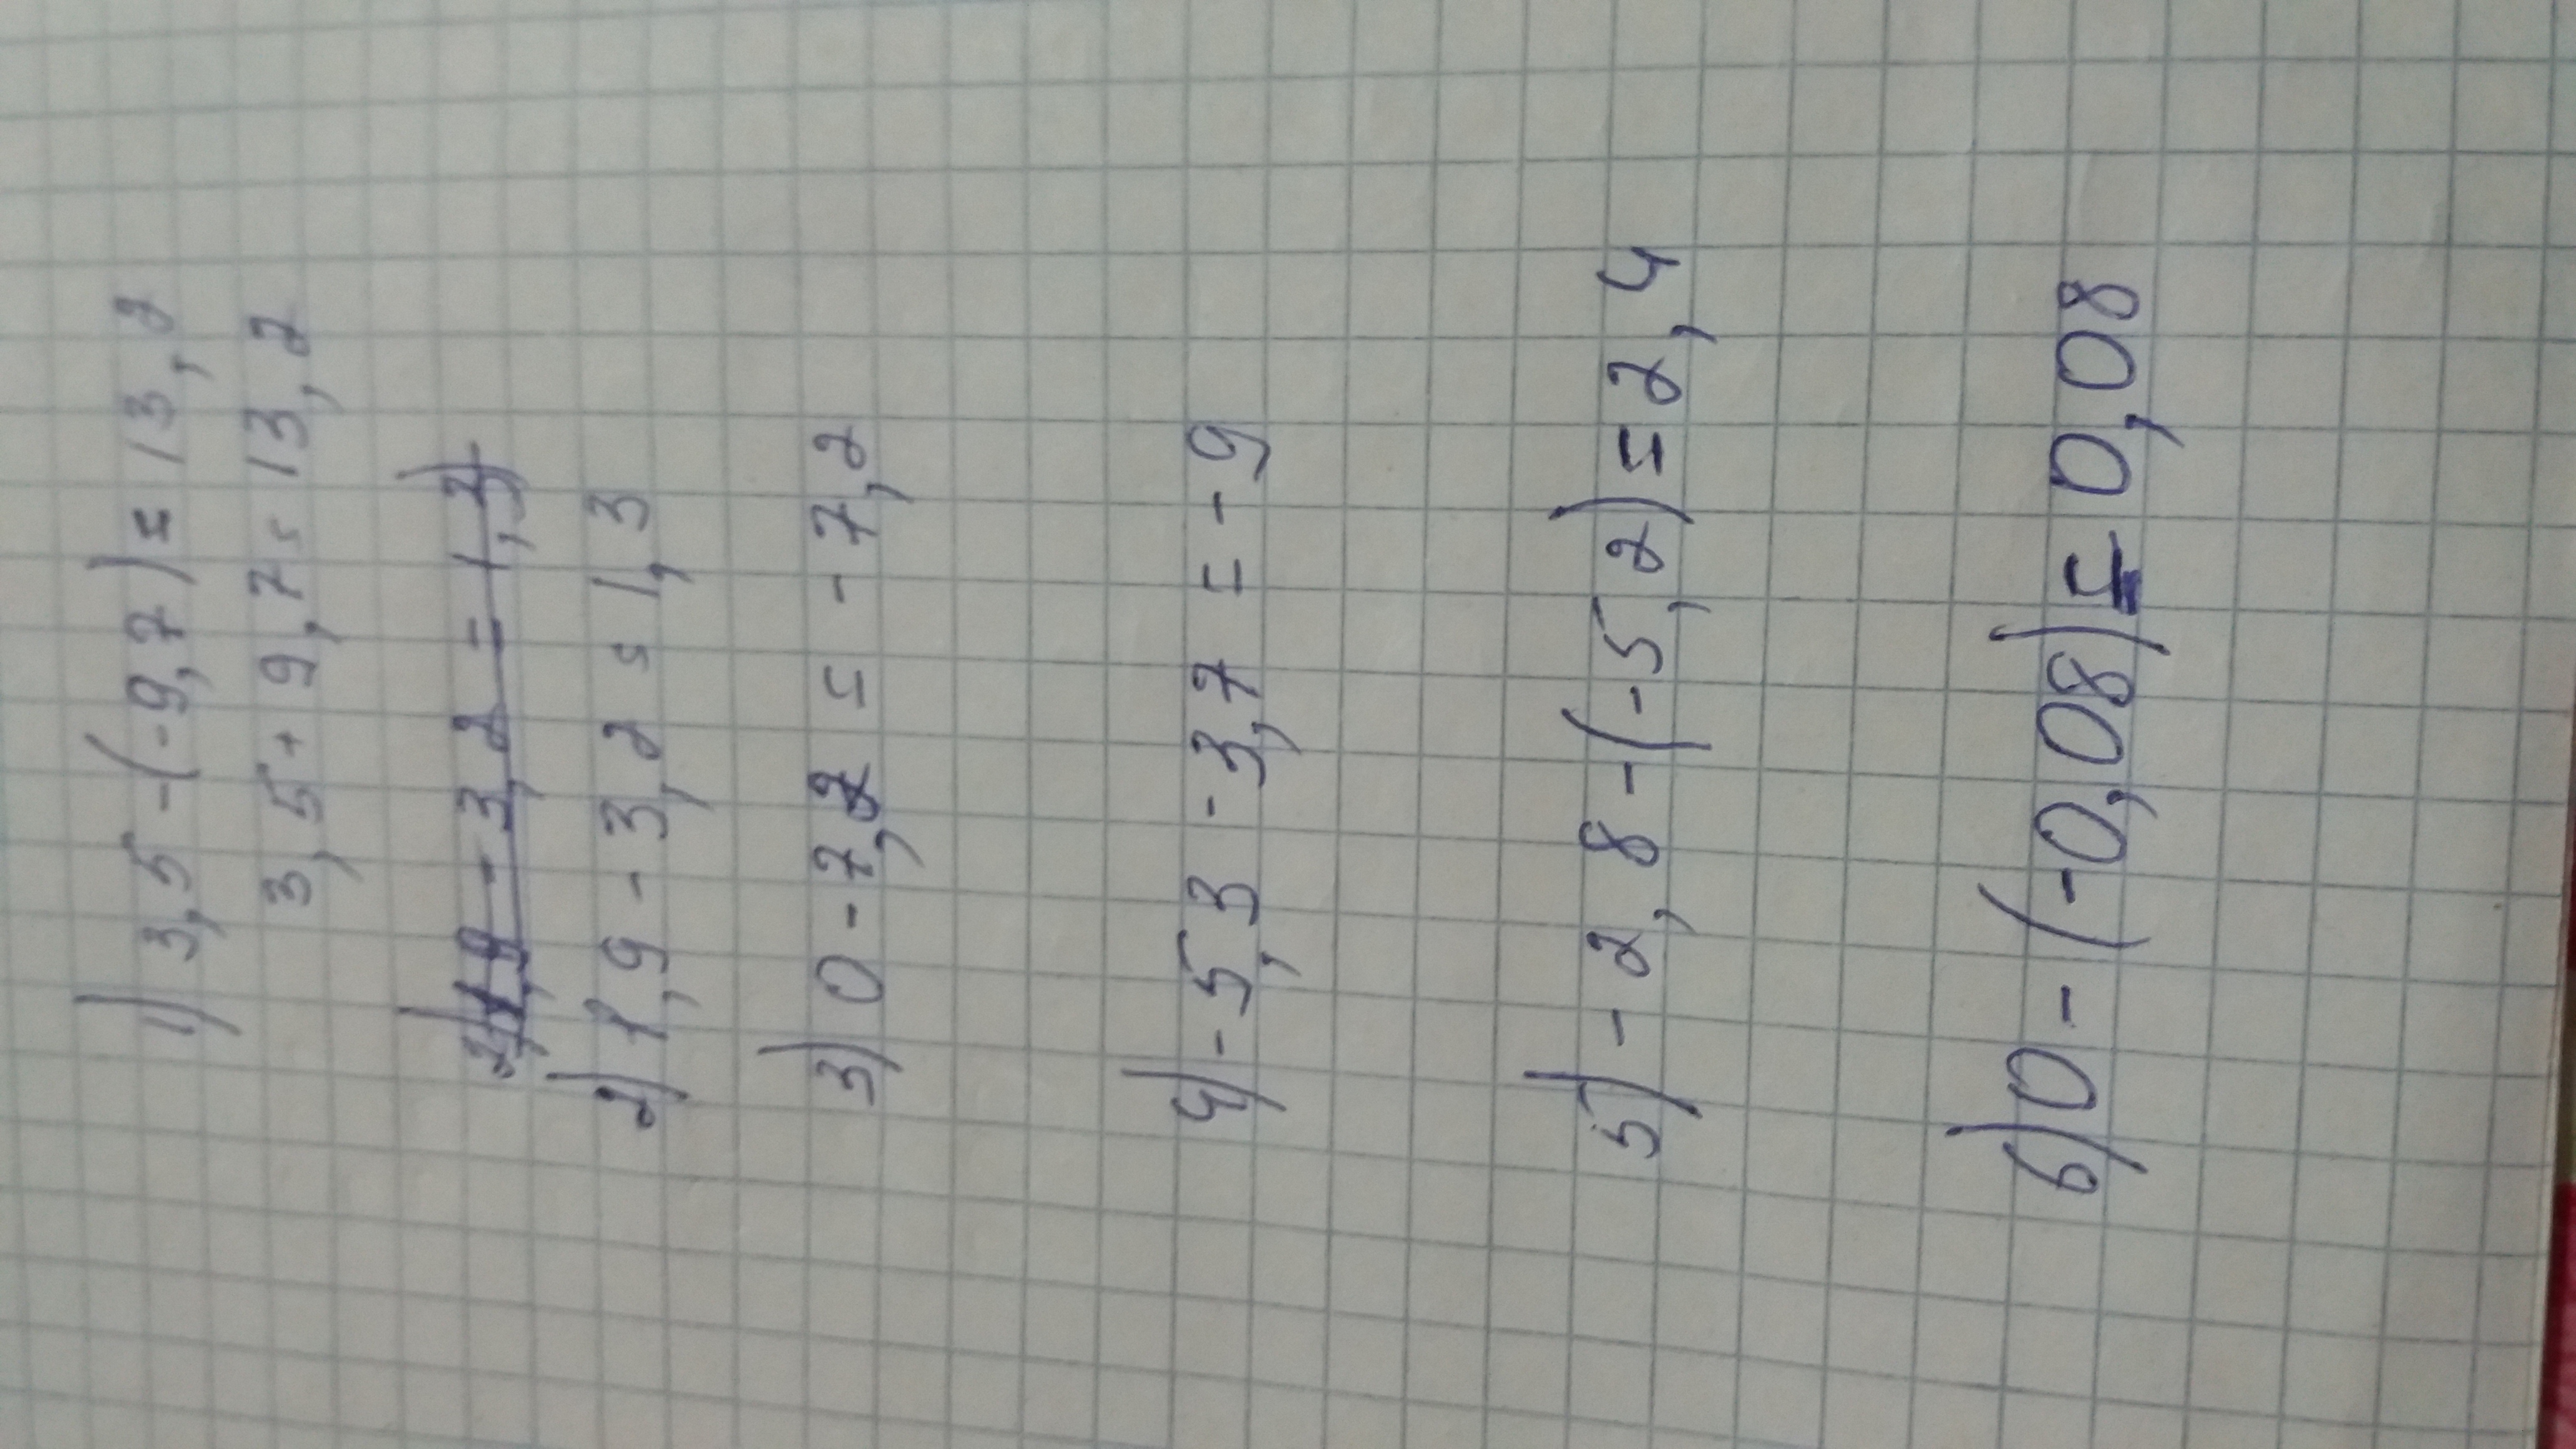 1) 3,5 - (-9,7) = 13,2
3,5 + 9,7 = 13,2
2) 1,9 - 3,2 = 1,3
2) 1,9 - 3,2 = 1,3
3) 0 - 7,2 = - 7,2
4) - 5,3 - 3,7 = - 9
5) - 2,8 - (-5,2) = 2,4
6) 0 - (-0,08) = 0,08